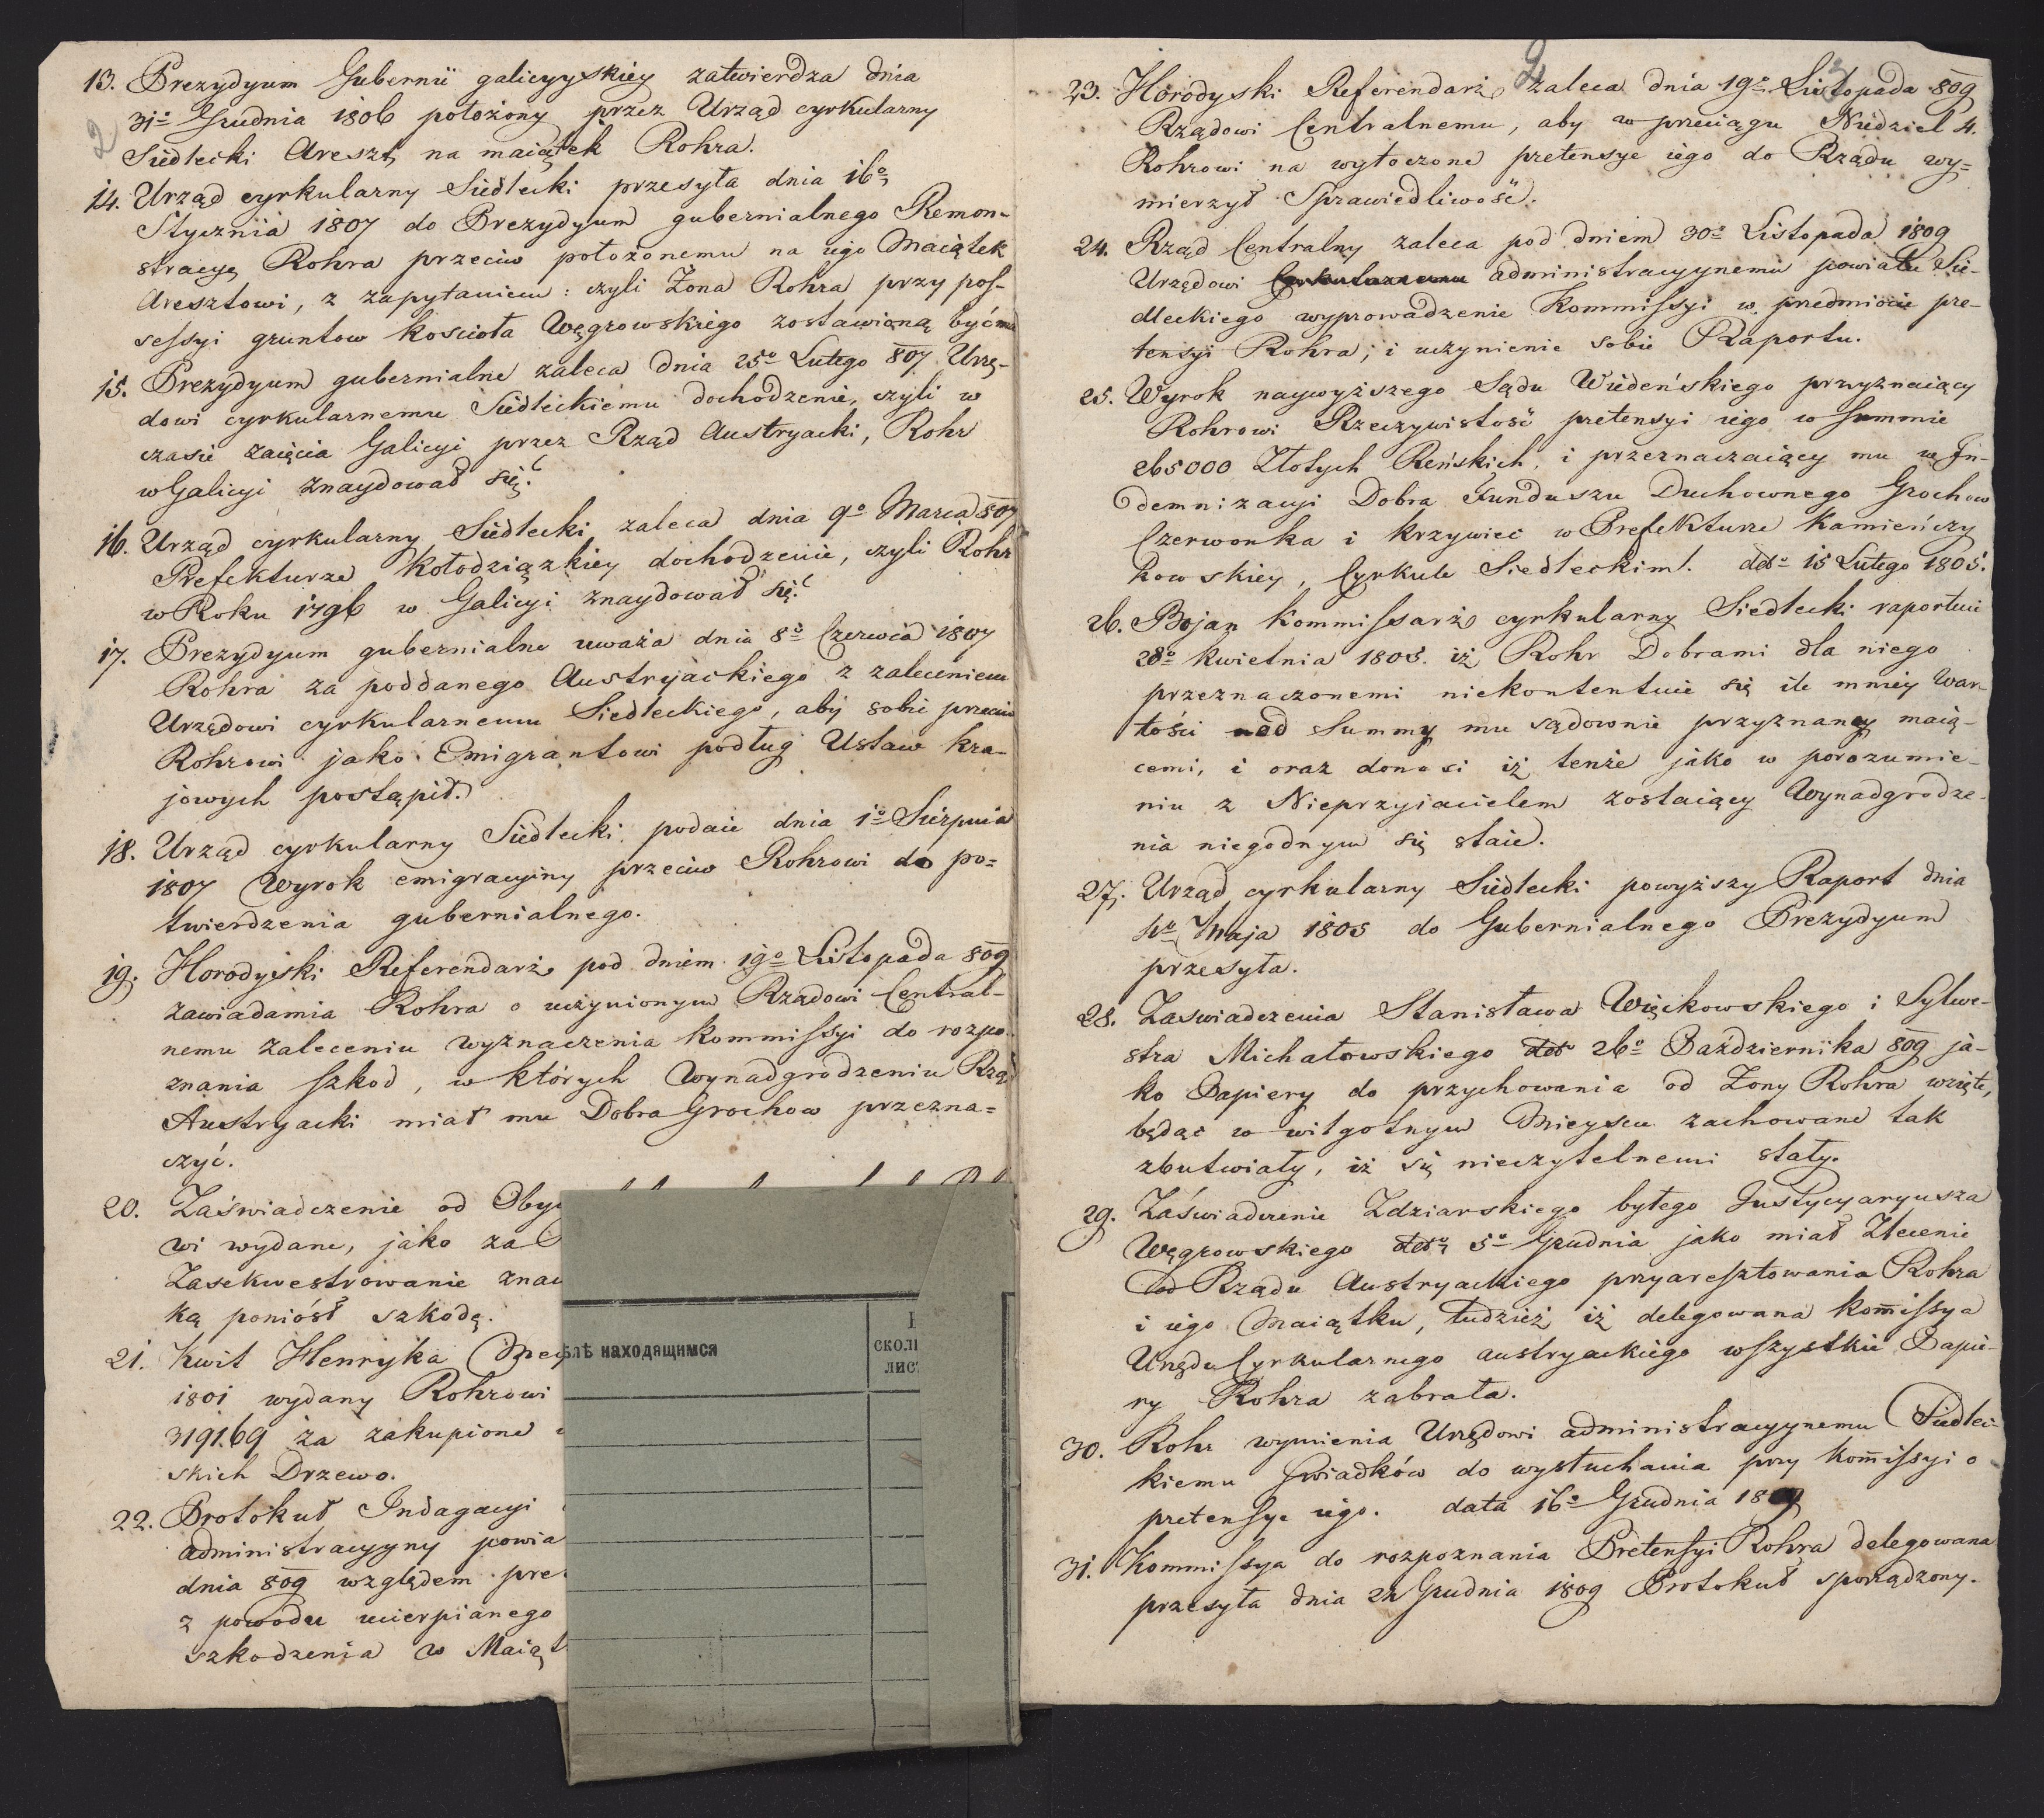 2
13. Prezydyum Gubernii galicyyskiey zatwierdza dnia
31o Grudnia 1806 położony przez Urząd cyrkularny
Siedlecki Areszt na maiątek Rohra.
14. Urząd cyrkularny Siedlecki przesyła dnia 16o
Stycznia 1807 do Prezydyum gubernialnego Remon-
stracyę Rohra przeciw położonemu na iego Maiątek
Aresztowi, z zapytaniem: czyli Żona Rohra przy pos-
sessyi gruntow kościoła Węgrowskiego zostawioną być ma
15. Prezydyum gubernialne zaleca dnia 25o Lutego 807 Urzę-
dowi cyrkularnemu Siedleckiemu dochodzenie, czyli w
czasie zaięcia Galicyi przez Rząd Austryacki, Rohr
w Galicyi znaydował się?
16. Urząd cyrkularny Siedlecki zaleca dnia 9o Marca 807
Prefekturze Kołodziązkiey dochodzenie, czyli Rohr
w Roku 1796 w Galicyi znaydował się?
17. Prezydyum gubernialne uważa dnia 8o Czerwca 1807
Rohra za poddanego Austryackiego z zaleceniem
Urzędowi cyrkularnemu Siedleckiego, aby sobie przeciw
Rohrowi jako Emigrantowi podług Ustaw kra-
jowych postąpił.
18. Urząd cyrkularny Siedlecki podaie dnia 1o Sierpnia
1807 Wyrok emigracyiny przeciw Rohrowi do po-
twierdzenia gubernialnego.
19. Horodyski Referendarz pod dniem 19o Listopada 809
zawiadamia Rohra o uczynionym Rządowi Central-
nemu zaleceniu wyznaczenia kommissyi do rozpo-
znania szkod, w których Wynadgrodzeniu Rząd
Austryacki miał mu Dobra Grochow przezna-
czyć.
20. Zaświadczenie od Oby
wi wydane, jako za
Zasekwestrowanie zna
ką poniósł szkodę.
21. Kwit Henryka Mey
1801 wydany Rohrowi
3191.69 za zakupione
skich Drzewo.
22. Protokuł Indagacyi
administracyyny powia
dnia 809 względem pre
z powodu ucierpianego
szkodzenia w Maiąt
ѣлѣ находящимся
скол
лис
2
23. Horodyski Referendarz zaleca dnia 19o Listopada 809
Rządowi Centralnemu, aby w przeciągu Niedziel 4.
Rohrowi na wytoczone pretensye iego do Rządu wy-
mierzył Sprawiedliwość.
24. Rząd Centralny zaleca pod dniem 30o Listopada 1809
Urzędowi Cyrkularnemu administracyynemu powiatu Sie-
dleckiego wyprowadzenie Kommissyi w przedmiocie pre-
tensyi Rohra, i uczynienie sobie Raportu.
25. Wyrok naywyższego Sądu Wiedeńskiego przyznaiący
Rohrowi Rzeczywistość pretensyi iego w Summie
265000 Złotych Reńskich, i przeznaczaiący mu w In-
demnizacyi Dobra Funduszu Duchownego Grochow
Czerwonka i Krzywiec w Prefekturze Kamieńczy
kowskiey, Cyrkule Siedleckim. ddo 15 Lutego 1805.
26. Bojan Kommissarz cyrkularny Siedlecki raportuie
28o Kwietnia 1805. iż Rohr Dobrami dla niego
przeznaczonemi niekontentuie się ile mniey War-
tości od Summy mu sądownie przyznaney maią-
cemi, i oraz donosi iż tenże jako w porozumie-
niu z Nieprzyiacielem zostaiący Wynadgrodze-
nia niegodnym się staie.
27. Urząd cyrkularny Siedlecki powyższy Raport dnia
4o Maja 1805 do Gubernialnego Prezydyum
przesyła.
28. Zaswiadczenia Stanisława Więckowskiego i Sylwe-
stra Michałowskiego ddo 26o Października 809 ja-
ko Papiery do przychowania od Żony Rohra wzięte,
będąc w wilgotnym Mieyscu zachowane tak
zbutwiały, iż się nieczytelnemi stały.
29. Zaświadczenie Zdziarskiego byłego Justycyaryusza
Węgrowskiego ddo 5o Grudnia jako miał Zlecenie
od Rządu Austryackiego przyaresztowania Rohra
i iego Maiątku, tudzież iż delegowana kommissya
Urzędu Cyrkularnego austryackiego wszystkie Papie-
ry Rohra zabrała.
30. Rohr wymienia Urzędowi administracyynemu Siedlec-
kiemu Świadków do wysłuchania przy kommissyi o
pretensye iego. data 16o Grudnia 1809
31. Kommissya do rozpoznania Pretensyi Rohra delegowana
przesyła dnia 22 Grudnia 1809 Protokuł sporządzony.